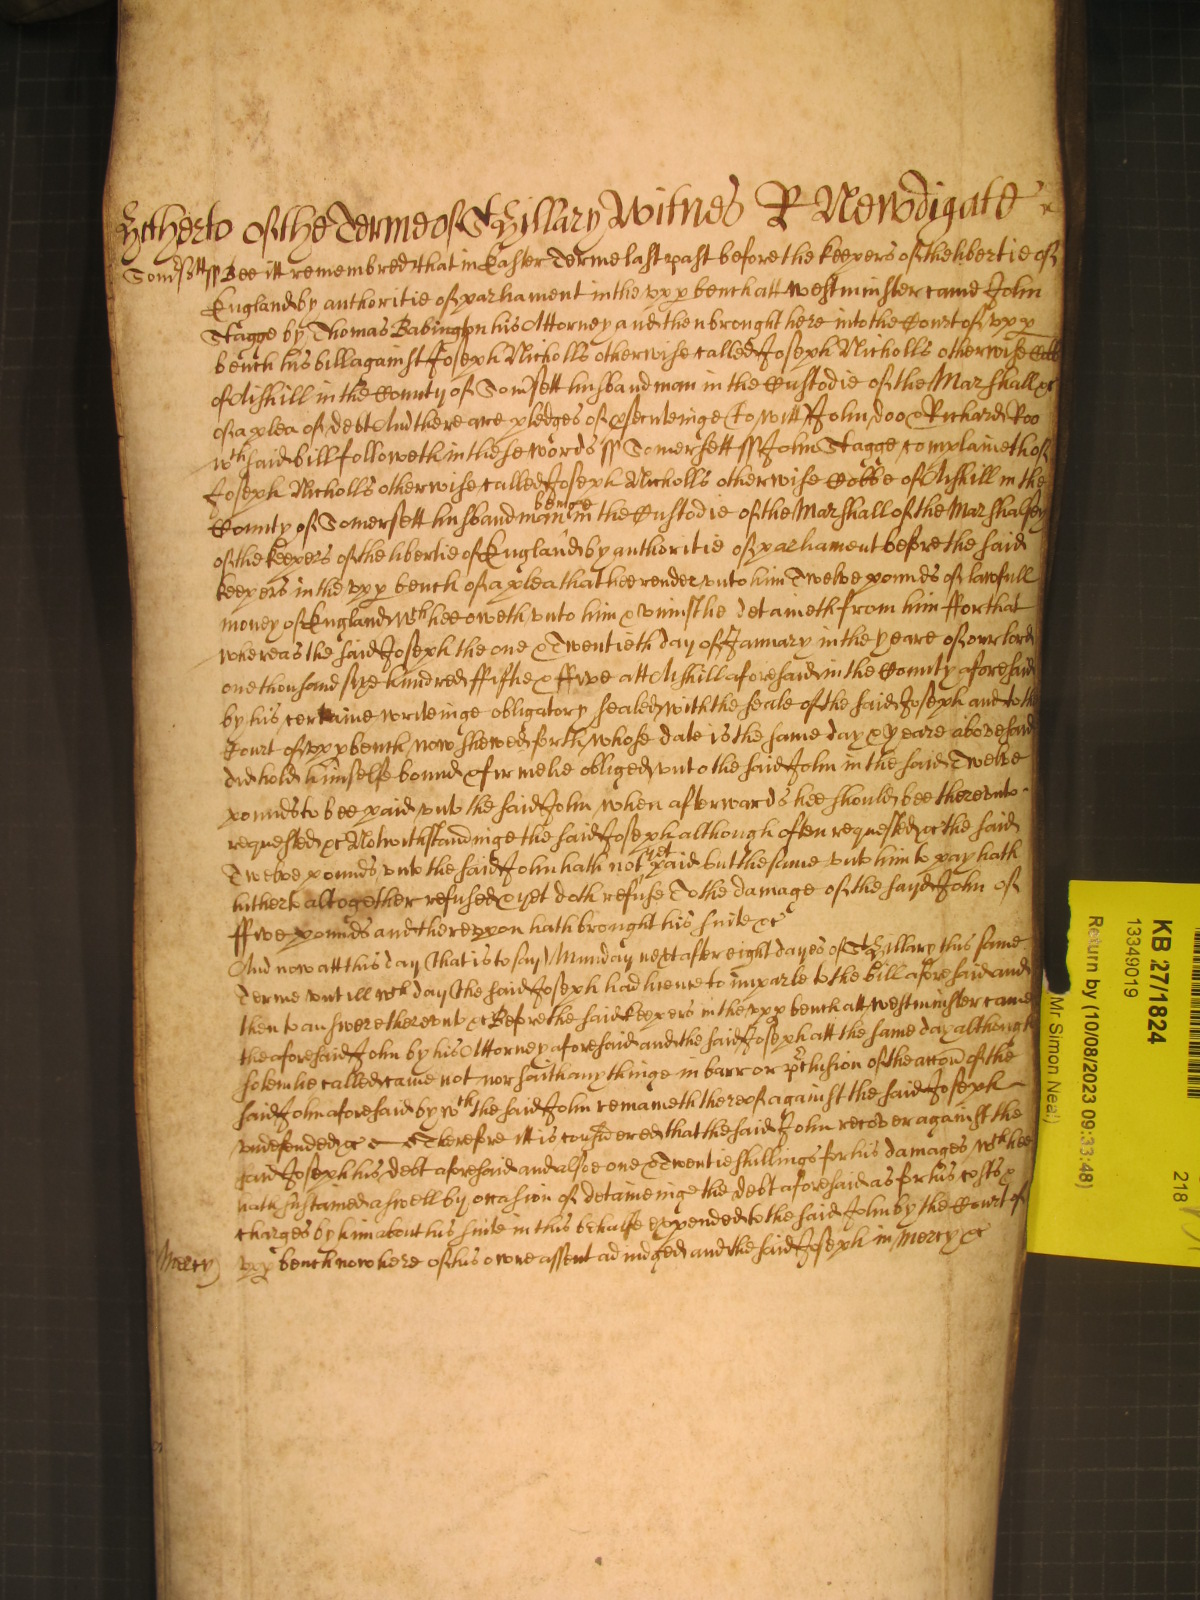 Hitherto of the Terme of St Hillary Witnes R Newdigate
Somsett ss Bee itt remembred that in Easter Terme last past before the keepers of the libertie of
England by authoritie of parliament in the vpp bench att Westminster came John
Stagge by Thomas Babington his Attorney and then brought here into the Court of vpp
bench his bill against Joseph Nicholls otherwise called Joseph Nicholls otherwise Cobbe
of Aishill in the County of Somsett husbandman in the Custodie of the Marshall &c
of a plea of debt And there are pledges of psecuteinge (to witt) John doo & Richard Roo
wch said bill followeth in these words ss Somersett ss John Stagge complaineth of
Joseph Nicholls otherwise called Joseph Nicholls otherwise Cobbe of Aishill in the
County of Somersett husbandman beinge in the Custodie of the Marshall of the Marshalsey
of the keepers of the libertie of England by authoritie of parliament before the said
keepers in the vpp bench of a plea that hee render vnto him Twelve pounds of lawfull
money of England wch hee oweth vnto him & vniustlie detaineth from him ffor that
whereas the said Joseph the one & Twentieth day of January in the yeare of our lord
one thousand sixe hundred ffiftie & ffive att Aishill aforesaid in the County aforesaid
by his certaine writeinge obligatory sealed with the seale of the said Joseph and to the
Court of vpp bench now shewed forth whose date is the same day & yeare abovesaid
did hold himselfe bound & firmelie obliged vnto the said John in the said Twelve
pounds to bee paid vnto the said John when afterwards hee should bee therevnto
requested &c Notwithstandinge the said Joseph although often requested &c the said
Twelve pounds vnto the said John hath not yet paid but the same vnto him to pay hath
hitherto altogether refused & yet doth refuse To the damage of the sayd John of
ffive pounds and therevpon hath brought his suite &c
And now att this day (that is to say) Munday next after eight dayes of St Hillary this same
Terme vntill wch day the said Joseph had licence to imparle to the bill aforesaid and
then to answere therevnto &c Before the said keepers in the vpp bench att Westminster came
the aforesaid John by his Attorney aforesaid and the said Joseph att the same day although
solemlie called came not nor saith any thinge in barr or pclusion of the accon of the
said John aforesaid by wch the said John remaineth thereof against the said Joseph
vndefended &c Therefore itt is considered that the said John recover against the
said Joseph his debt aforesaid and alsoe one & Twentie shillings for his damages wch hee
hath sustained aswell by occasion of detaineinge the debt aforesaid as for his costs &
charges by him about his suite in this behalfe expended to the said John by the Court of
Mercy vpp bench now here of his owne assent adiudged and the said Joseph in Mercy &c
KB 27/1824
13349019
Return by (10/08/2023 09:33:48)
Mr Simon Neal)
218